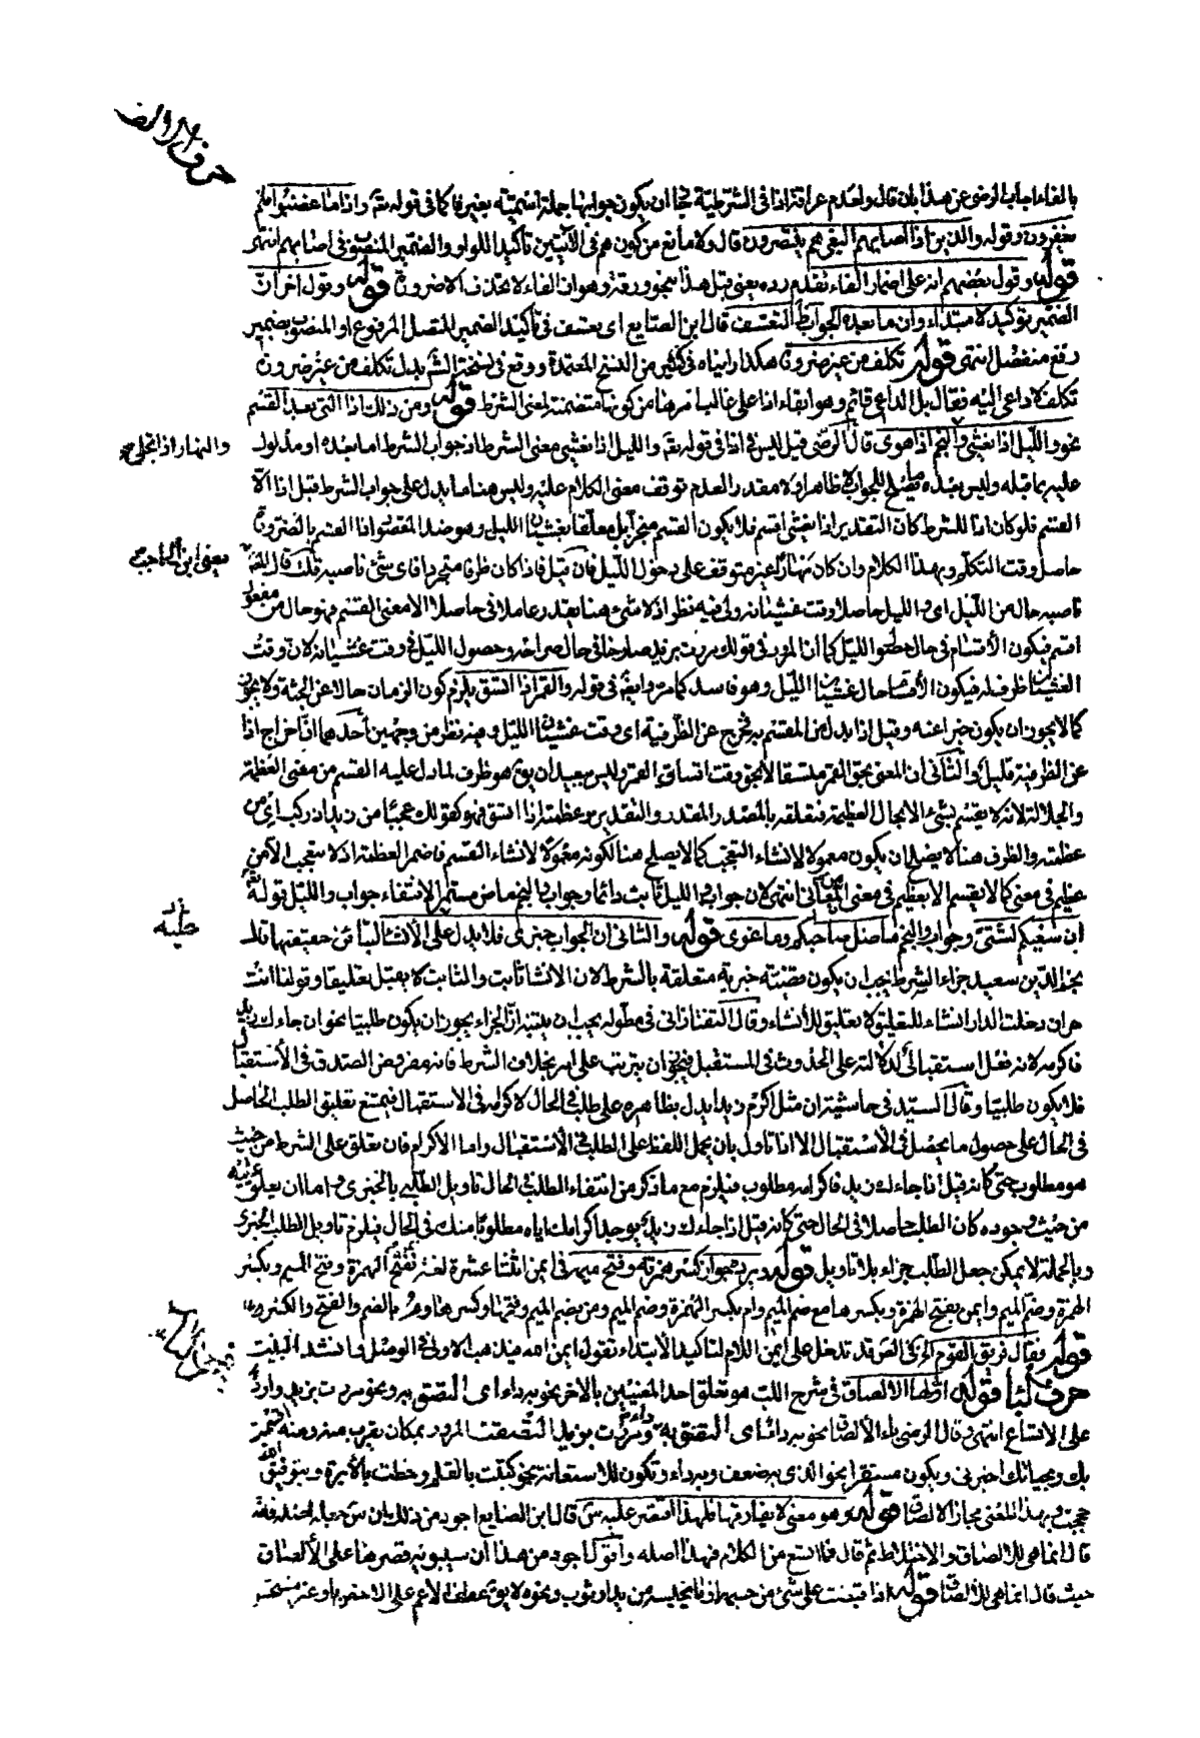 حرف الالف
بالفاء اجاب الرضى عن هذا بان قال ولعدم عراقة اذا فى الشرطية جاز ان يكون جوابها جملة اسمية بغير فاء كما فى قوله تعالى واذا ما غضبوا هم
يغفرون وقوله والذين اذا اصابهم البغى هم ينتصرون قال ولا مانع من كون هم فى الآيتين تأكيد للواو والضمير المنصوب فى اصابهم انتهى
قوله وقول بعضهم انه على اضمار الفاء تقدم رده يعنى قبل هذا بنحو ورقة وهو ان الفاء لا تحذف الا ضرورة قوله وقول اخر ان
الضمير توكيد لا مبتداء وان ما بعده الجواب تعسف قال ابن الصايغ اى يعتسف فى تأكيد الضمير المتصل المرفوع او المنصوب بضمير
رفع منفصل انتهى قوله تكلف من غير ضرورة هكذا رايناه فى كثير من النسخ المعتمدة ووقع فى نسخة الشم بدل تكلف من غير ضرورة
تكلف لا داعى اليه فقال بل الداعى قائم وهو ابقاء اذا على غالب امرها من كونها متضمنة لمعنى الشرط قوله ومن ذلك اذا التى بعد القسم
نحو والليل اذا يغشى والنجم اذا هوى قال الرضى قيل ليس فى اذا فى قوله تعالى والليل اذا يغشى معنى الشرط اذ جواب الشرط اما بعده او مدلول
والنهار اذا تجلى
عليه بما قبله وليس بعده ما يصلح للجواب لا ظاهرا ولا مقدر العدم توقف معنى الكلام عليه وليس هنا ما يدل على جواب الشرط قبل اذا الا
القسم فلو كان اذا للشرط كان التقدير اذا يغشى اقسم فلا يكون القسم منجزا بل معلقا بغشيان الليل وهو ضد المقصود اذا القسم بالضرورة
حاصل وقت التكلم بهذا الكلام وان كان نهارا غير متوقف على دخول الليل فان قيل فاذا كان ظرفا متجردا فاى شئ ناصبه قلت قال
يعنى ابن الحاجب
ناصبه حال من الليل اى والليل حاصلا وقت غشيانه ولى فيه نظر اذ لا شئ هنا يقدر عاملا فى حاصلا الا معنى القسم فهو حال من مفعول
اقسم فيكون الأقسام فى حال حصول الليل كما ان المرور فى قولك مررت بزيد صارخا فى حال صراخه وحصول الليل فى وقت غشيانه لان وقت
الغشيان ظرف له فيكون الأقسام حال غشيان الليل وهو فاسد كما مر وايضا فى قوله والقمر اذا اتسق يلزم كون الزمان حالا عن الجثة ولا يجوز
كما لا يجوز ان يكون خبرا عنه وقيل اذا بدل من المقسم به مخرج عن الظرفية اى وقت غشيان الليل وفيه نظر من وجهين أحدهما ان اخراج اذا
عن الظرفية قليل والثانى ان المعنى بحق القمر متسقا لا بحق وقت اتساق القمر وليس ببعيد ان يق هو ظرف لما دل عليه القسم من معنى العظمة
والجلالة لانه لا يقسم بشئ الا لحال العظيمة فتعلقه بالمصدر المقدر والتقدير وعظمته اذا اتسق فهو كقولك عجبا من زيد اذا ركب اى من
عظمته والظرف هنا لا يصلح ان يكون معمولا لانشاء التعجب كما لا يصلح هنا لكونه معمولا لانشاء القسم فاضمر العظمة اذ لا يتعجب الا من
عظيم فى معنى كما لا يقسم الا بعظيم فى معنى المعانى انتهى لان جواب والليل ثابت دائما وجواب والنجم ماض مستمر الانتفاء جواب والليل قوله
ان سعيكم لشتى وجواب والنجم ما ضل صاحبكم وما غوى قوله والثانى ان الجواب خبرى فلا يدل على الأنشاء لتباين حقيقتهما قال
نجم الدين سعيد جزاء الشرط يجب ان يكون قضية خبرية متعلقة بالشرط لان الانشاء ثابت والثابت لا يقبل تعليقا وقولنا انت
حر ان دخلت الدار انشاء للتعليق لا تعليق للأنشاء وقال التفتازانى فى مطوله يجب ان يتنبه ان الجزاء يجوز ان يكون طلبيا نحو ان جاءك زيد
فاكرمه لانه فعل استقبالى لدلالته على الحدوث فى المستقبل فيجوز ان يترتب على امر بخلاف الشرط فانه مفروض الصدق فى الأستقبال
فلا يكون طلبيا وقال السيد فى حاشيته ان مثل اكرم زيدا يدل بظاهره على طلب فى الحال لاكرامه فى الاستقبال فيمتنع تعليق الطلب الحاصل
فى الحال على حصول ما يحصل فى الأستقبال الا اذا تاول بان يحمل اللفظ على الطلب فى الأستقبال واما الاكرام فان تعلق على الشرط من حيث
هو مطلوب حتى كانه قيل اذا جاءك زيد فاكرامه مطلوب فيلزم مع ما ذكر من انتفاء الطلب فى الحال تاويل الطلبى بالخبرى واما ان يعلق عليه
من حيث وجوده كان الطلب حاصلا فى الحال حتى كانه قيل اذا جاءك زيد يوجد اكرامك اياه مطلوبا منك فى الحال فيلزم تاويل الطلب الخبرى
وبالجملة لا يمكن جعل الطلب جزاء بلا تاويل قوله ويرده جواز كسر همزته وفتح ميمه فى ايمن اثنتا عشرة لغة تفتح الهمزة وفتح الميم وبكسر
الهمزة وضم الميم وايمن بفتح الهمزة وبكسرها مع ضم الميم وام بكسر الهمزة وضم الميم ومن بضم الميم وفتحها وكسرها وم بالضم والفتح والكسر
قوله فقال فريق القوم قد تدخل على ايمن اللام لتاكيد الأبتداء تقول ليمن الله فيذهب الاولى فى الوصل وانشد البيت
حرف البا قوله اولها الالصاق فى شرح اللب هو تعلق احد المعنيين بالآخر نحو به داء اى التصق به ونحو مررت بزيد وارد
على الاتساع انتهى وقال الرضى باء الألصاق نحو به داء اى التصق به ومررت بزيد التصقت المرور بمكان يقرب منه ومنه اقسمت
بك وبحياتك اخبرنى ويكون مستقرا نحو الذى به ضعف وبه داء وتكون للاستعانة نحو كتبت بالقلم وخطت بالأبرة وبتوفيق الله
حججت وبهذا المعنى مجاز الالصاق قوله وهو معنى لا يفارقها فلهذا اقتصر عليه س قال ابن الصايغ اجود من ذلك بان س جعله اصله فانه
قال انما هى للالصاق والاختلاط ثم قال فما اتسع من الكلام فهذا اصله واقول اجود من هذا ان سيبويه قصرها على الألصاق
حيث قال انما هى للألصاق قوله اذا قبضت على شئ من جسمه او ما يحبسه من يد او ثوب ونحوه لا يق عطف الأعم على الاخص باو غير مستحسن